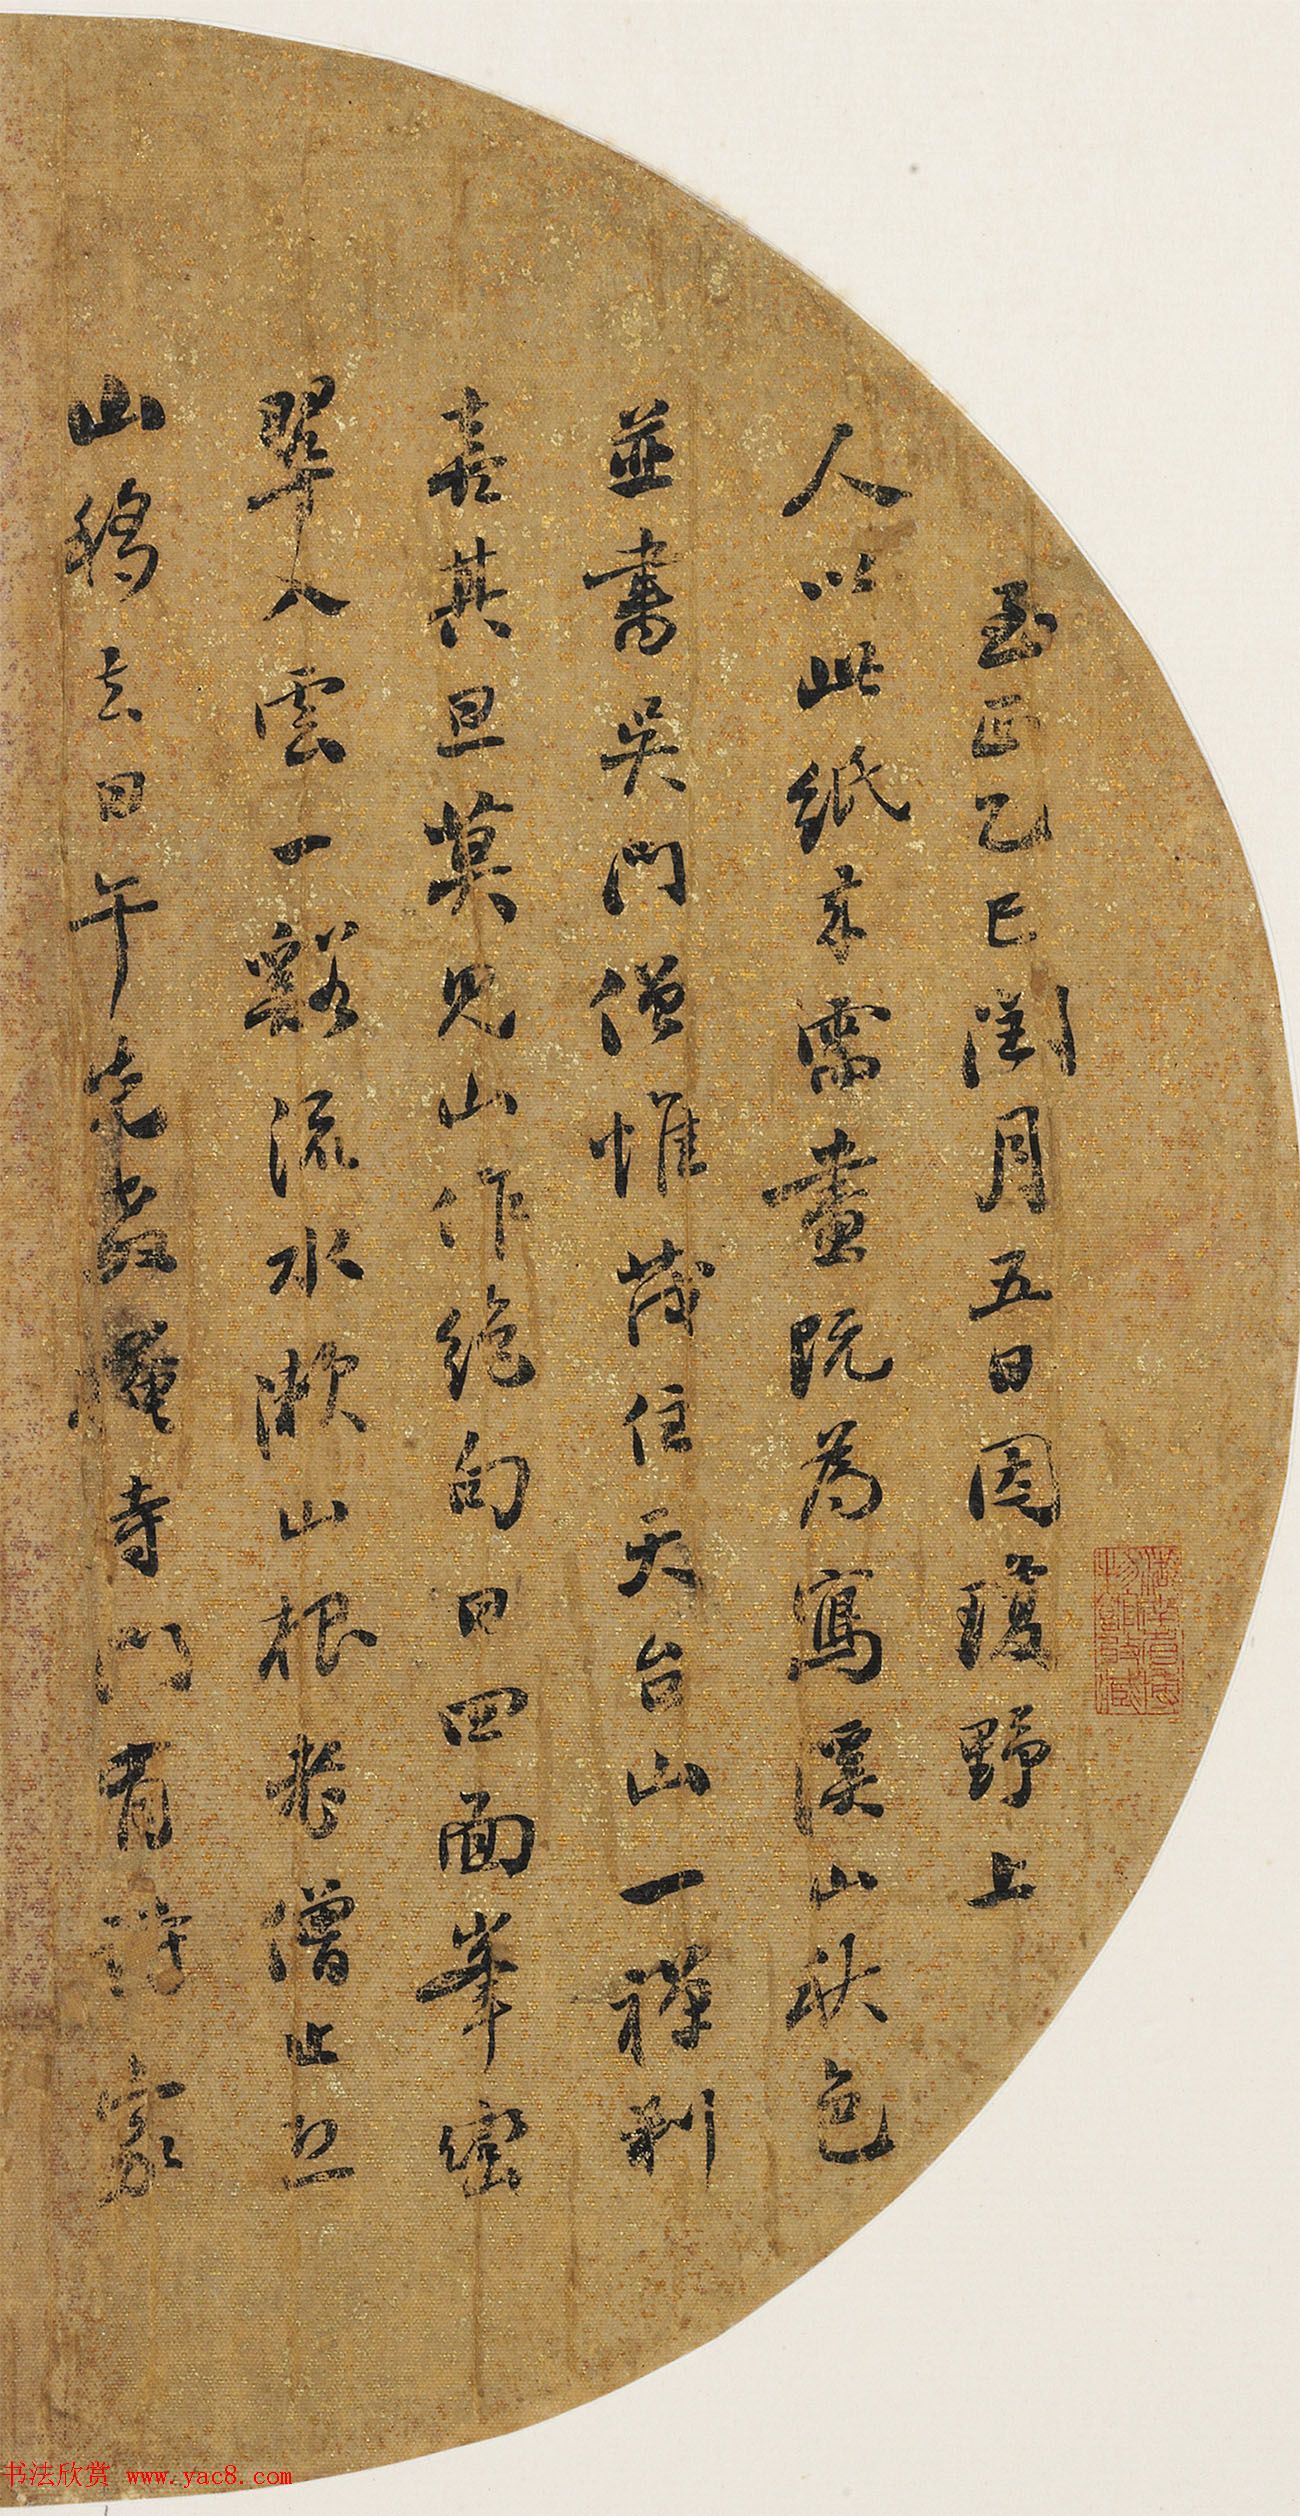 至正乙巳閏月五日因瓊野上
人以此紙來需畫既為寫溪山秋色
並書吳門僧惟茂住天台山一禪刹
喜其旦莫見山作絕句曰四面峯巒
翠入雲一谿流水漱山根老僧只恐
山移去日午先教掩寺門有詩家
书法欣赏 www.yac8.com